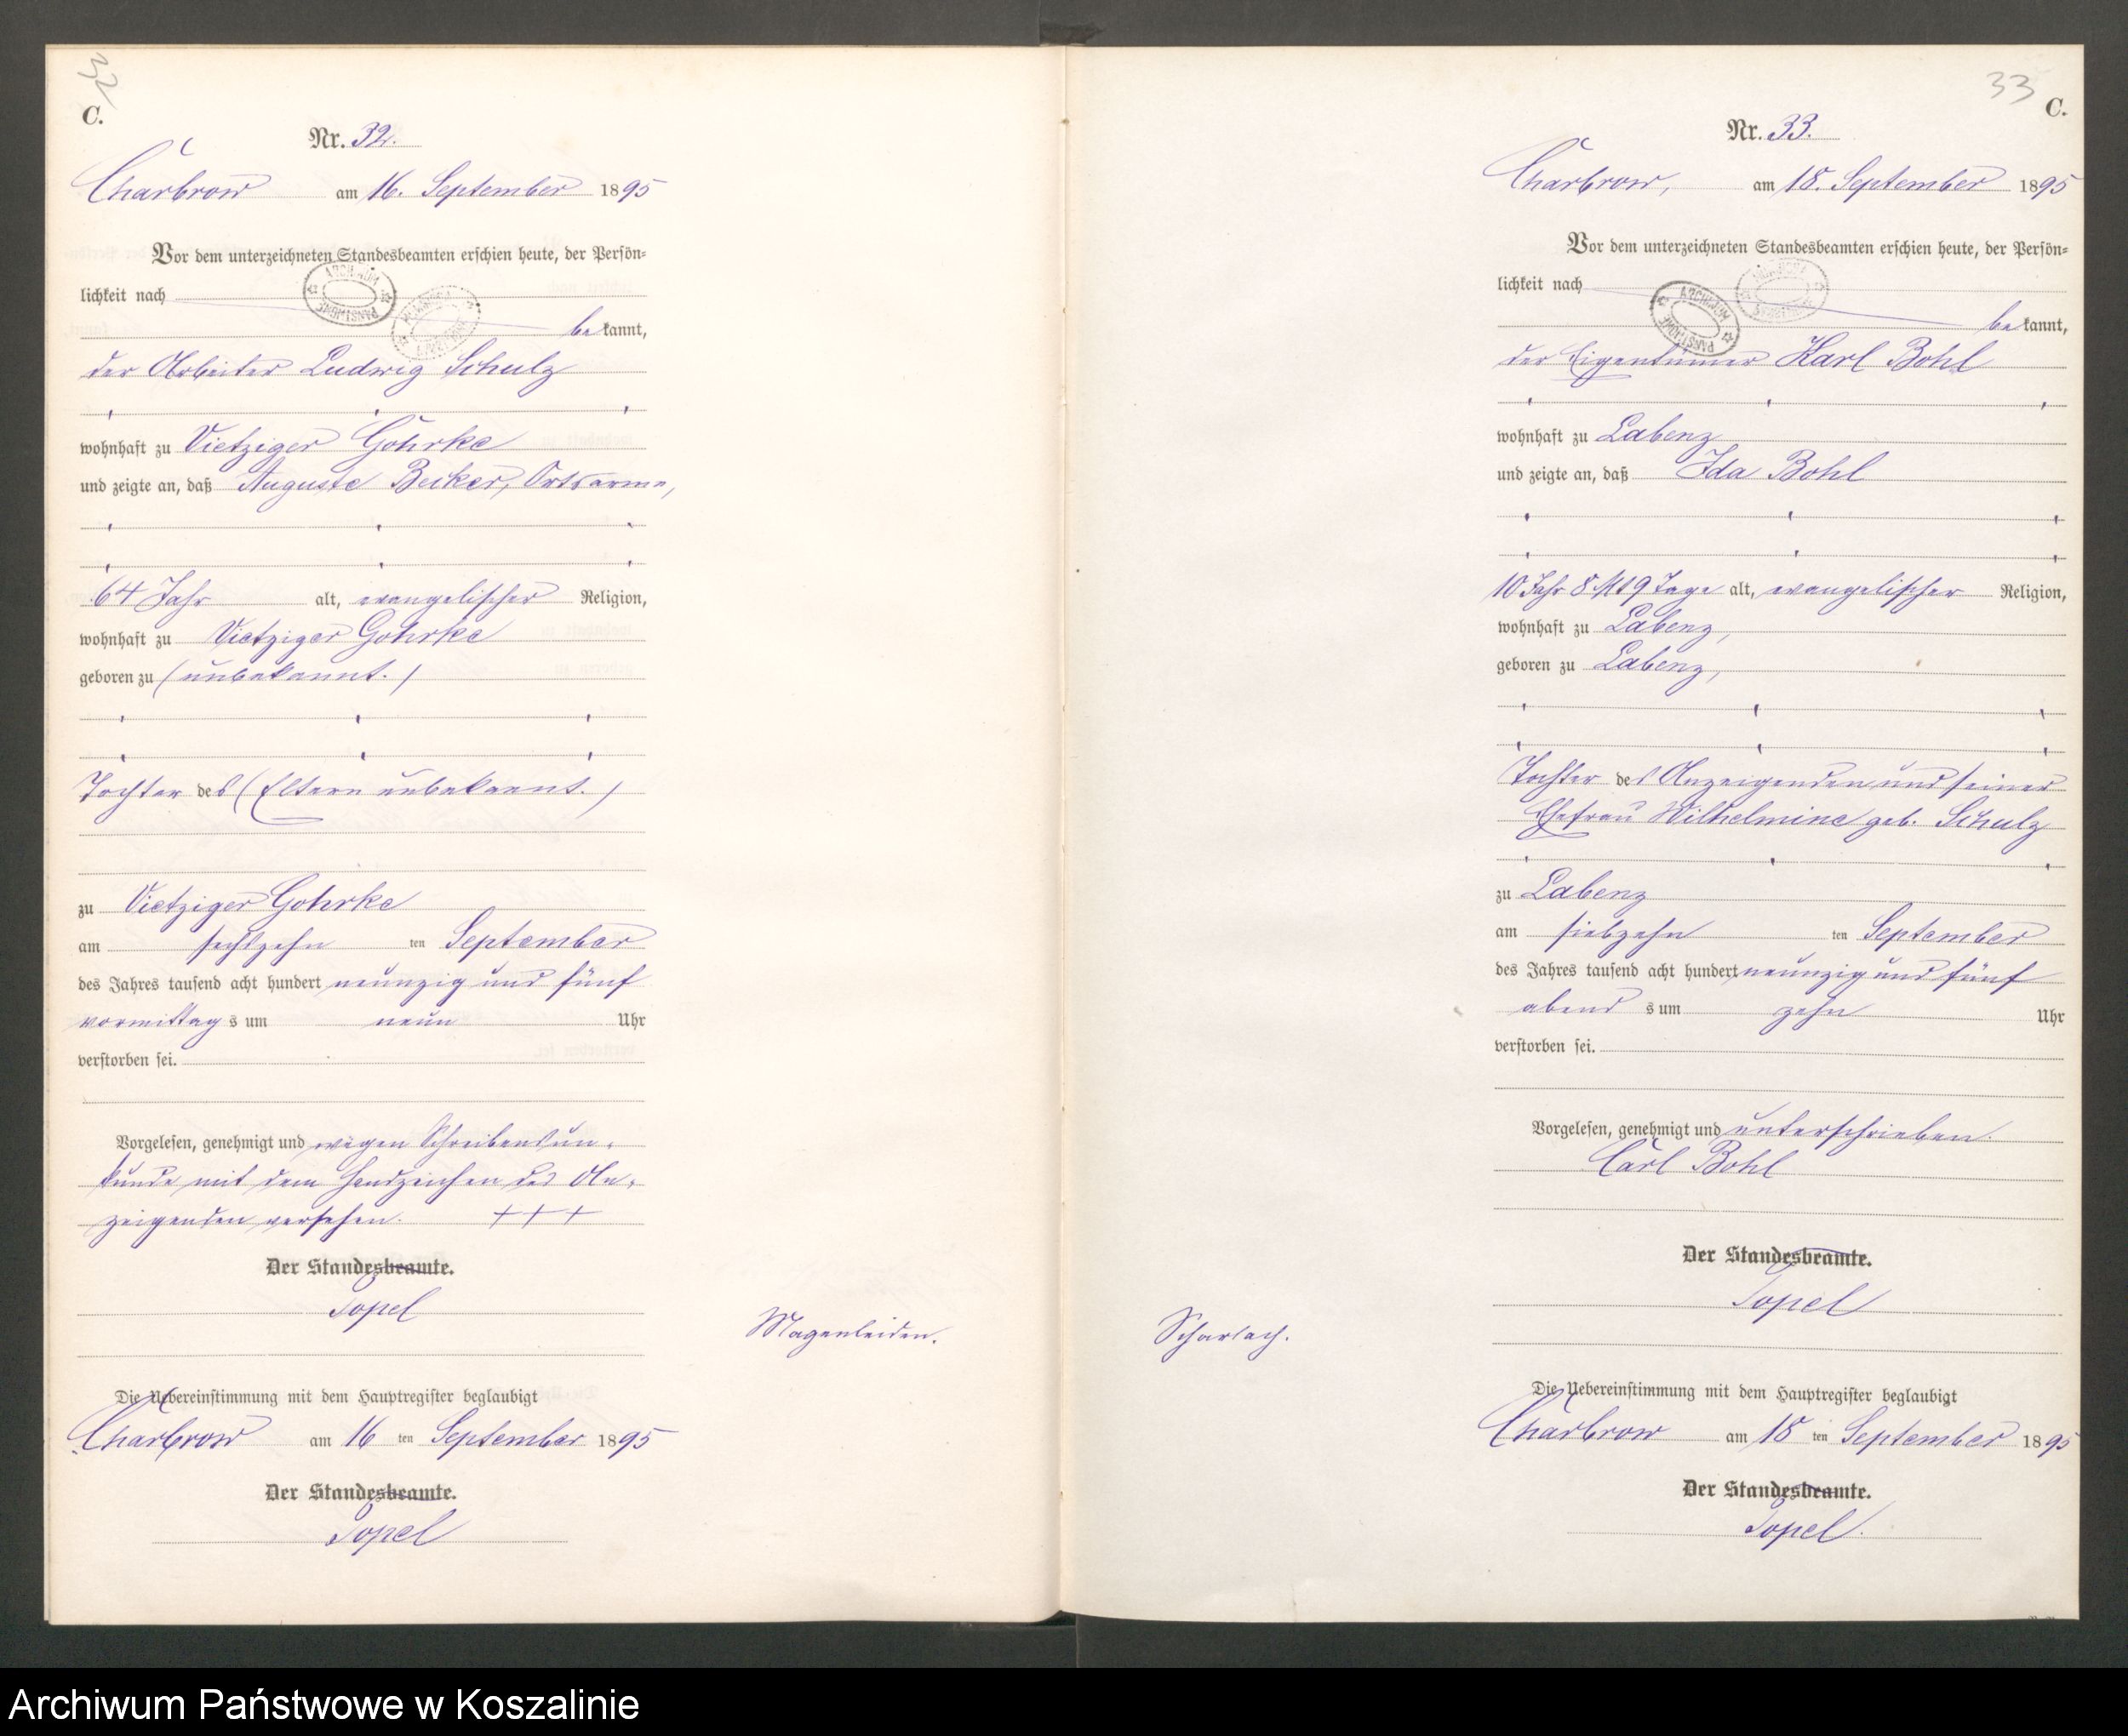 32
C.
Nr. 32.
Charbrow am 16. September 1895
Vor dem unterzeichneten Standesbeamten erschien heute, der Persön=
lichkeit nach
be kannt,
der Arbeiter Ludwig Schulz
wohnhaft zu Vietziger Gohrke
und zeigte an, daß Auguste Becker, Ortsarme,
64 Jahr alt, evangelischer Religion,
wohnhaft zu Vietziger Gohrke
geboren zu (unbekannt.)
Tochter des (Eltern unbekannt.)
zu Vietziger Gohrke
am sechszehn ten September
des Jahres tausend acht hundert neunzig und fünf
vormittag s um neun Uhr
verstorben sei.
Vorgelesen, genehmigt und wegen Schreibensun=
kunde mit dem Handzeichen des An=
zeigenden versehen. +++
Der Standesbeamte.
Topel
Magenleiden.
Die Uebereinstimmung mit dem Hauptregister beglaubigt
Charbrow am 16 ten September 1895
Der Standesbeamte.
Topel
33
C.
Nr. 33.
Charbrow, am 18. September 1895
Vor dem unterzeichneten Standesbeamten erschien heute, der Persön=
lichkeit nach
be kannt,
der Eigentümer Karl Bohl
wohnhaft zu Labenz
und zeigte an, daß Ida Bohl
10 Jahr 8 Mt 9 Tage alt, evangelischer Religion,
wohnhaft zu Labenz,
geboren zu Labenz,
Tochter des Anzeigenden und seiner
Ehefrau Wilhelmine geb. Schulz
zu Labenz
am siebzehn ten September
des Jahres tausend acht hundert neunzig und fünf
abend s um zehn Uhr
verstorben sei.
Vorgelesen, genehmigt und unterschrieben.
Carl Bohl
Der Standesbeamte.
Topel
Scharlach.
Die Uebereinstimmung mit dem Hauptregister beglaubigt
Charbrow am 18 ten September 1895
Der Standesbeamte.
Topel.
Archiwum Państwowe w Koszalinie